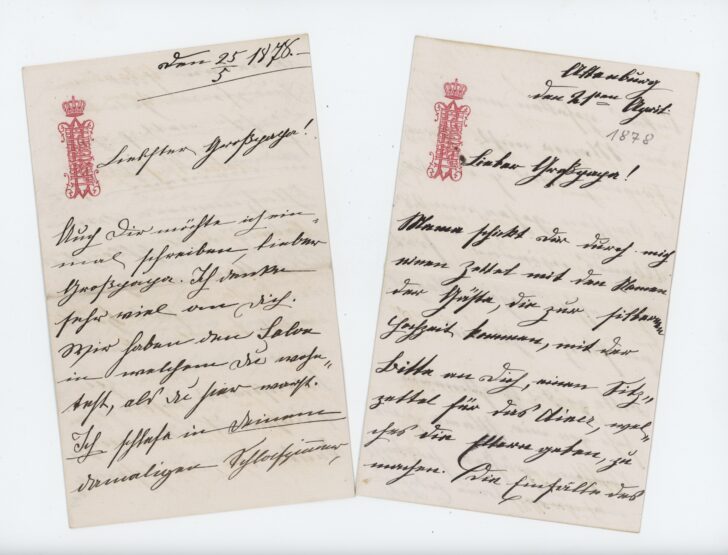 den 25/5 1878.
Liebster Großpapa!
Auch Dir möchte ich ein=
mal schreiben, lieber
Großpapa. Ich denke
sehr viel an Dich.
Wir haben den Salon
in welchem Du wohn=
test, als Du hier warst.
Ich schlafe in Deinem
damaligen Schlafzimmer,
Altenburg
den 21ten April
1878
Lieber Großpapa!
Mama schickt Dir durch mich
einen Zettel mit den Namen
der Gäste, die zur silbernen
Hochzeit kommen, mit der
Bitte an Dich, einen Sitz=
zettel für das Diner, wel=
ches die Eltern geben, zu
machen. Die Einfälle des